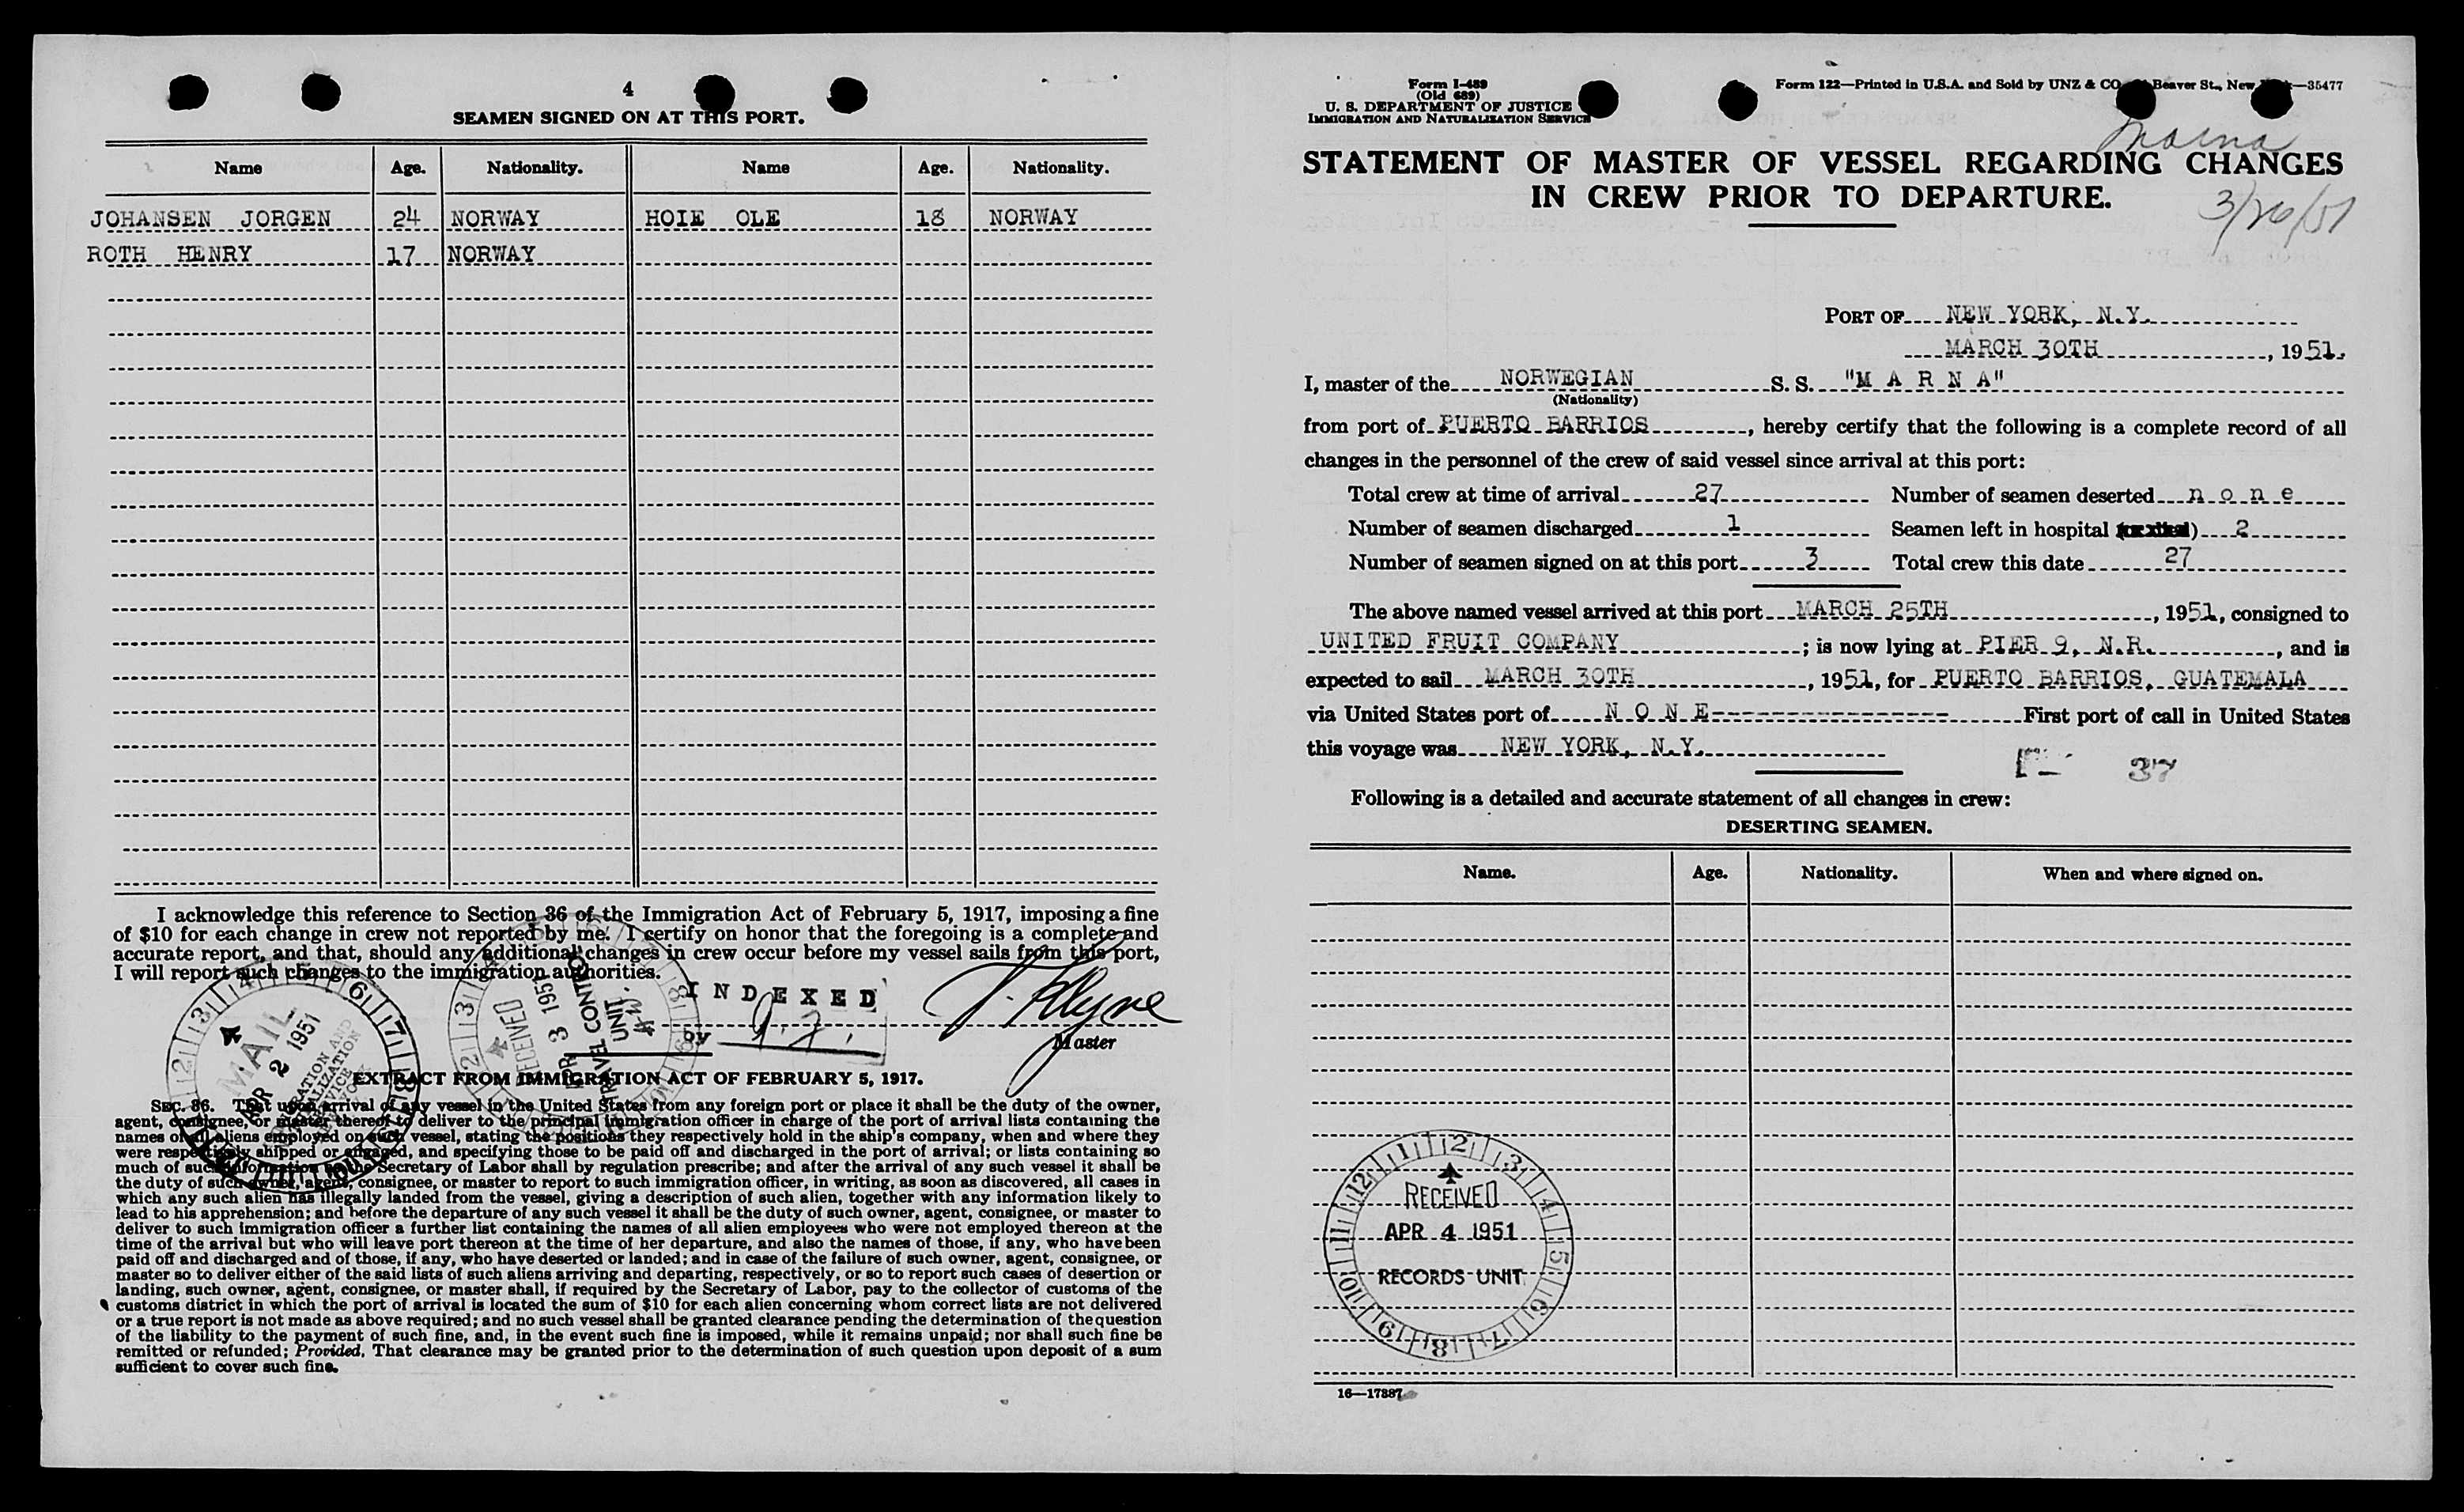 4
SEAMEN SIGNED ON AT THIS PORT.
Name Age. Nationality. Name Age. Nationality.
JOHANSEN JORGEN 24 NORWAY HOIE OLE 18 NORWAY
ROTH HENRY 17 NORWAY
I acknowledge this reference to Section 36 of the Immigration Act of February 5, 1917, imposing a fine
of $10 for each change in crew not reported by me. I certify on honor that the foregoing is a complete and
accurate report, and that, should any additional changes in crew occur before my vessel sails from this port,
I will report such changes to the immigration authorities.
INDEXED
by
Master
MAIL
APR 2 1951
RECEIVED
APR 3 1951
TRAVEL CONTROL
UNIT
EXTRACT FROM IMMIGRATION ACT OF FEBRUARY 5, 1917.
SEC. 36. That upon arrival of any vessel in the United States from any foreign port or place it shall be the duty of the owner,
agent, consignee, or master thereof to deliver to the principal immigration officer in charge of the port of arrival lists containing the
names of all aliens employed on such vessel, stating the positions they respectively hold in the ship's company, when and where they
were respectively shipped or engaged, and specifying those to be paid off and discharged in the port of arrival; or lists containing so
much of such information as the Secretary of Labor shall by regulation prescribe; and after the arrival of any such vessel it shall be
the duty of such owner, agent, consignee, or master to report to such immigration officer, in writing, as soon as discovered, all cases in
which any such alien has illegally landed from the vessel, giving a description of such alien, together with any information likely to
lead to his apprehension; and before the departure of any such vessel it shall be the duty of such owner, agent, consignee, or master to
deliver to such immigration officer a further list containing the names of all alien employees who were not employed thereon at the
time of the arrival but who will leave port thereon at the time of her departure, and also the names of those, if any, who have been
paid off and discharged and of those, if any, who have deserted or landed; and in case of the failure of such owner, agent, consignee, or
master so to deliver either of the said lists of such aliens arriving and departing, respectively, or so to report such cases of desertion or
landing, such owner, agent, consignee, or master shall, if required by the Secretary of Labor, pay to the collector of customs of the
customs district in which the port of arrival is located the sum of $10 for each alien concerning whom correct lists are not delivered
or a true report is not made as above required; and no such vessel shall be granted clearance pending the determination of the question
of the liability to the payment of such fine, and, in the event such fine is imposed, while it remains unpaid; nor shall such fine be
remitted or refunded; Provided, That clearance may be granted prior to the determination of such question upon deposit of a sum
sufficient to cover such fine.
Form I-489
(Old 689)
U. S. DEPARTMENT OF JUSTICE
IMMIGRATION AND NATURALIZATION SERVICE
Form 122—Printed in U.S.A. and Sold by UNZ & CO Beaver St., New —35477
Marna
STATEMENT OF MASTER OF VESSEL REGARDING CHANGES
IN CREW PRIOR TO DEPARTURE.
3/26/51
PORT OF NEW YORK, N.Y.
MARCH 30TH, 1951.
I, master of the NORWEGIAN S. S. "M A R N A"
(Nationality)
from port of PUERTO BARRIOS, hereby certify that the following is a complete record of all
changes in the personnel of the crew of said vessel since arrival at this port:
Total crew at time of arrival 27 Number of seamen deserted n o n e
Number of seamen discharged 1 Seamen left in hospital ) 2
Number of seamen signed on at this port 3 Total crew this date 27
The above named vessel arrived at this port MARCH 25TH, 1951, consigned to
UNITED FRUIT COMPANY; is now lying at PIER 9, N.R., and is
expected to sail MARCH 30TH, 1951, for PUERTO BARRIOS, GUATEMALA
via United States port of N O N E First port of call in United States
this voyage was NEW YORK, N.Y.
37
Following is a detailed and accurate statement of all changes in crew:
DESERTING SEAMEN.
Name. Age. Nationality. When and where signed on.
RECEIVED
APR 4 1951
RECORDS UNIT
16—17887